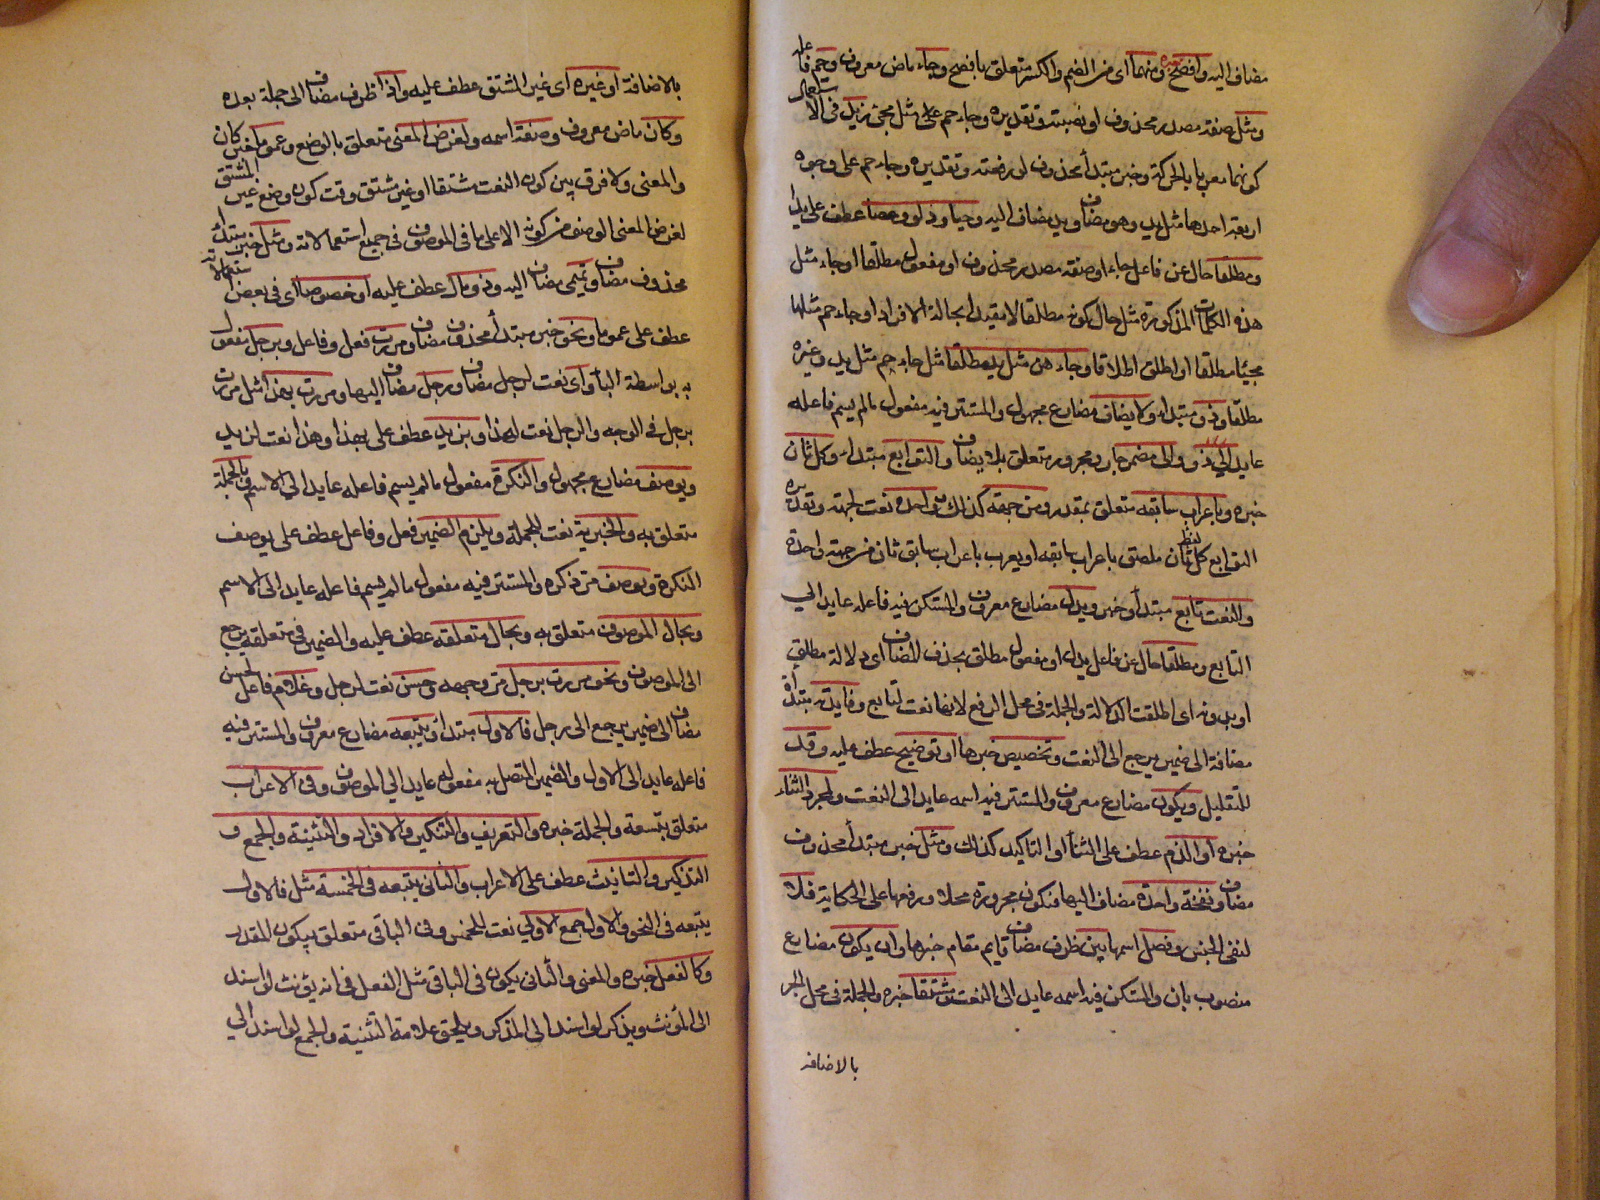 مضاف اليه وافصح ومنهما اى من الضم والكسر متعلق بافصح وجاء ماض معروف وحم فاعله
ومثل صفة مصدر محذوف او نصبته وتقديره وجاء حم على مثل مجئ يد فى الاستعمال
كونهما معربا بالحركة وخبر مبتدأ محذوف لو رفعته وتقديره وجاء حم على وجوه
اربعة احدها مثل يد وهو مضاف ويد مضاف اليه وخبأ ودلو وعصا عطف على يد
ومطلقا حال عن فاعل جاء او صفة مصدر محذوف او مفعول مطلقا او جاء مثل
هذه الكلمات المذكورة مثل حال كونه مطلقا لا مقيدا بحالة الافراد او جاء حم مثلها
مجيئا مطلقا او اطلق اطلاقا وجاء هن مثل يد مطلقا مثل جاء حم مثل يد وغيره
مطلقا وذو مبتداء ولا يضاف مضارع مجهول والمستتر فيه مفعول مالم يسم فاعله
عايد الى ذو والى مضمر جار ومجرور متعلق بلا يضاف والتوابع مبتداء وكل ثان
خبره وباعراب سابقه متعلق بمقدر ومن جهة كذلك واحدة نعت لجهة وتقديره
التوابع كل ثان ملصق باعراب سابقه او يعرب باعراب سابق ثان من جهة واحدة
والنعت تابع مبتدأ وخبر ويدل مضارع معروف والمستكن فيه فاعله عايد الى
التابع ومطلقا حال عن فاعل يدل او مفعول مطلق بحذف المضاف اى دلالة مطلق
او بدونه اى اطلقت الدلالة والجملة فى محل الرفع لانها نعت لتابع وفايدته مبتدأة
مضافة الى ضمير يرجع الى النعت وتخصيص خبرها او توضيح عطف عليه وقد
للتقليل ويكون مضارع معروف والمستتر فيه اسمه عايد الى النعت ولمجرد الثناء
خبره او الذم عطف على الثنأ او التاكيد كذلك ومثل خبر مبتدأ محذوف
مضاف ونفخة واحدة مضاف اليها فتكون مجرورة محلا ورفعها على الحكاية فلا
لنفى الجنس وفصل اسمها بين ظرف مضاف قايم مقام خبرها وان يكون مضارع
منصوب بان والمستكن فيه اسمه عايد الى النعت ومشتقا خبره والجملة فى محل الجر
بالاضافة
بالاضافة او غيره اى غير المشتق عطف عليه واذا ظرف مضاف الى جملة بعده
وكان ماض معروف وصفة اسمه ولغرض المعنى متعلق بالوضع وعموما خبر كان
والمعنى ولا فرق بين كون النعت مشتقا او غير مشتق وقت كون وضع غير المشتق
لغرض المعنى الوصف من كونه الا على ما فى الموصوف فى جميع استعمالاته ومثل خبر مبتدأ
محذوف مضاف وتميمى مضاف اليه وذو مال عطف عليه او خصوصا اى فى بعض استعمالاته
عطف على عموما ونحو خبر مبتدأ محذوف مضاف ومررت فعل وفاعل وبرجل مفعول
به بواسطة البأ واى نعت لرجل مضاف ورجل مضاف اليها ومررت بهذا مثل مررت
برجل فى الوجه والرجل نعت لهذا وبزيد عطف على بهذا وهذا نعت لزيد
ويوصف مضارع مجهول والنكرة مفعول مالم يسم فاعله عايد الى الاسم وبالجملة
متعلق به والخبرية نعت للجملة ويلزم الضمير فعل وفاعل عطف على يوصف
النكرة ويوصف مر ذكره والمستتر فيه مفعول مالم يسم فاعله عايد الى الاسم
وبحال الموصوف متعلق به وبحال متعلقه عطف عليه والضمير فى متعلقه يرجع
الى الموصوف ونحو مررت برجل مر وجهه وحسن نعت لرجل وغلامه فاعل لحسن
مضاف الى ضمير يرجع الى رجل فالاول مبتدأ ويتبعه مضارع معروف والمستتر فيه
فاعله عايد الى الاول والضمير المتصل به مفعوله عايد الى الموصوف وفى الاعراب
متعلق بيتبعه والجملة خبره والتعريف والتنكير والافراد والتثنية والجمع و
التذكير والتانيث عطف على الاعراب والثانى يتبعه فى الخمسة مثل فالاول
يتبعه فى النحو والاول جمع الاولى نعت للخمس وفى الباقى متعلق بيكون المقدر
وكالفعل خبره والمعنى والثانى يكون فى الباقى مثل الفعل فى انه يؤنث لو اسند
الى المؤنث ويذكر لو اسند الى المذكر ويلحق علامة التثنية والجمع لو اسند الى